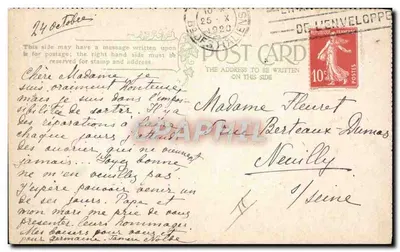 24 octobre
This side may have a message written upon
it for postage, the right hand side must be
reserved for stamp and address
POST CARD
THE ADDRESS TO BE WRITTEN
ON THIS SIDE
25 X
1920
DE L'ENVELOPPE
10c
POSTES
Chère Madame je
suis vraiment honteuse
mais je suis dans l'impos
sibilité de sortir. Il y a
des réparations à
chaque jour, j'attends
des ouvriers qui ne viennent
jamais... Soyez bonne
ne m'en veuillez pas
J'espère pouvoir venir un
de ses jours. Papa et
mon mari me prie de vous
presenter leurs hommages
Mes baisers pour vous et
pour Germaine
Madame Fleuret
Rue Berteaux Dumas
Neuilly
s/Seine
CPARAMA